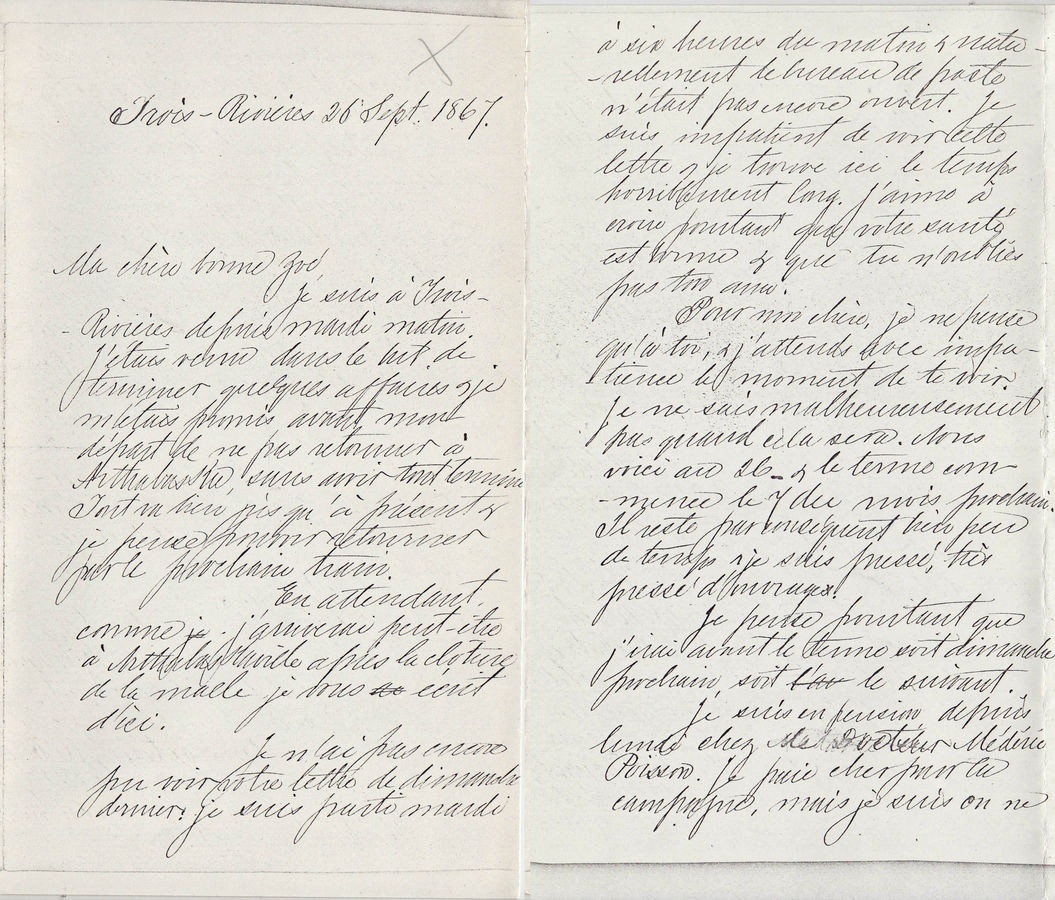 Trois-Rivières 26 Sept. 1867.
Ma chère bonne Zoé,
Je suis à Trois-
-Rivières depuis mardi matin.
J'étais venu dans le but de
terminer quelques affaires & je
m'étais promis avant mon
départ de ne pas retourner à
Arthabaska, sans avoir tout terminé
Tout va bien jusqu'à présent &
je pense pouvoir retourner
par le prochain train.
En attendant,
comme je j'arriverai peut-être
à Arthabaskaville après la clôture
de la malle je vous écrit
d'ici.
Je n'ai pas encore
pu voir votre lettre de dimanche
dernier: je suis parti mardi
à six heures du matin & natu-
-rellement le bureau de poste
n'était pas encore ouvert. Je
suis impatient de voir cette
lettre & je trouve ici le temps
horriblement long. J'aime à
croire pourtant que votre santé
est bonne & que tu n'oublies
pas ton ami.
Pour moi chère, je ne pense
qu'à toi, & j'attends avec impa-
tience le moment de te voir.
Je ne sais malheureusement
pas quand cela sera. Nous
voici au 26 & le terme com-
-mence le 7 du mois prochain.
Il reste par conséquent bien peu
de temps & je suis pressé, très
pressé d'ouvrages.
Je pense pourtant que
j'irai avant le terme soit dimanche
prochain, soit le suivant.
Je suis en pension depuis
lundi chez Docteur Médéric
Poisson. Je paie cher pour la
campagne, mais je suis on ne